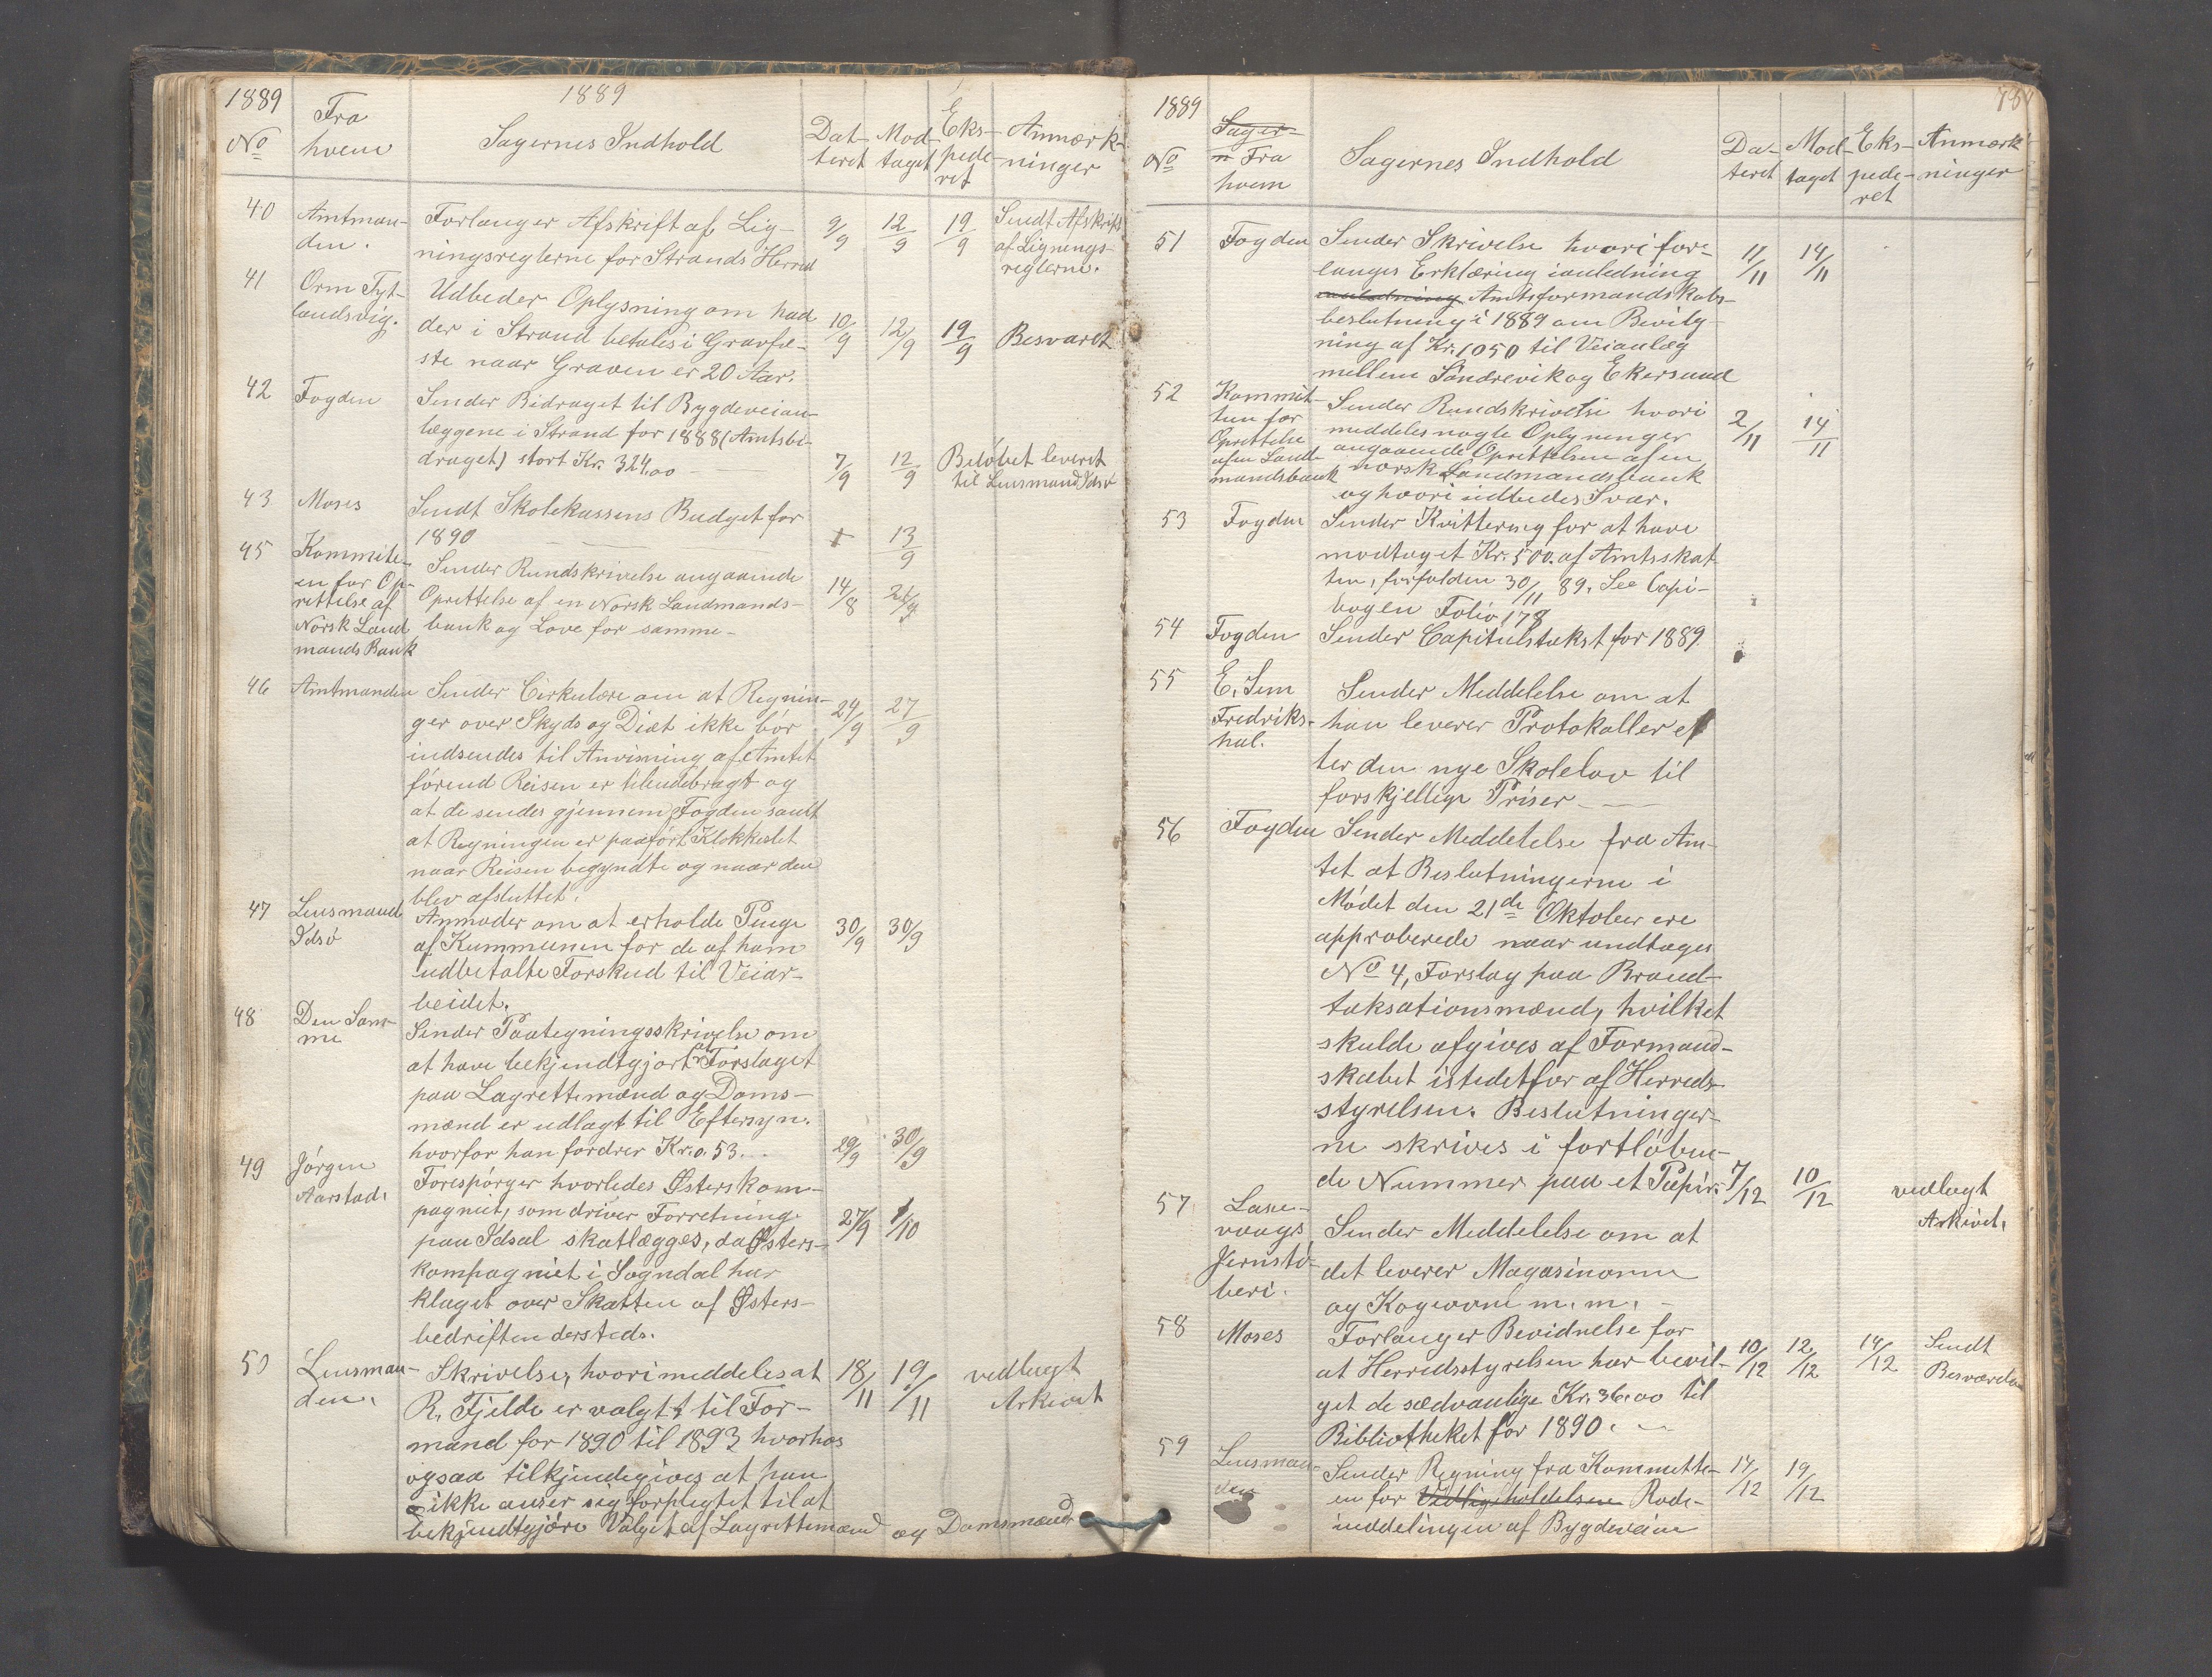 1889
1889
No
Fra
hvem
Sagernes Indhold
Dat-
teret
Mod-
taget
Eks-
pede-
ret
Anmærk-
ninger
40
Amtman-
den.
Forlanger Afskrift af Lig-
ningsreglerne for Strands Herred
9/9
12/9
19/9
Sendt Afskrift
af Lignings-
reglerne.
41
Orm Tyt-
landsvig.
Udbeder Oplysning om hvad
der i Strand betales i Gravfæ-
ste naar Graven er 20 Aar.
10/9
12/9
19/9
Besvaret
42
Fogden
Sender Bidraget til Bygdeveian-
læggene i Strand for 1888 (Amtsbi-
draget) stort Kr. 324.00
7/9
12/9
Beløbet leveret
til Lensmand Idsø
43
Moses
Sendt Skolekassens Budget for
1890
13/9
45
Kommite-
en for Op-
rettelse af
Norsk Land
mands Bank
Sender Rundskrivelse angaaende
Oprettelse af en Norsk Landmands-
bank og Love for samme-
14/8
46
Amtmanden
Sender Cirkulære om at Regnin-
ger over Skyds og Diæt ikke bør
indsendes til Anvisning af Amtet
førend Reisen er tilendebragt og
at de sendes gjennem Fogden samt
at Regningen er paaført Klokkeslet
naar Reisen begyndte og naar den
blev afsluttet.
24/9
27/9
47
Lensmand
Idsø
Anmoder om at erholde Penge
af Kummunen for de af ham
udbetalte Forskud til Veiar-
beidet.
30/9
30/9
48
Den Sam-
me
Sender Paategningsskrivelse om
at have bekjendtgjort at Forslaget
paa Lagrettemænd og Doms-
mænd er udlagt til Eftersyn.
hvorfor han fordrer Kr. 0.53.
29/9
30/9
49
Jørgen
Aarstad.
Forespørger hvorledes Østerskom-
pagniet, som driver Forretning
paa Idsal skatlægges, da Østers-
kompagniet i Sogndal har
klaget over Skatten af Østers-
bedriften dersteds.
27/9
1/10
50
Lensman-
den.
Skrivelse, hvori meddeles at
R. Fjelde er valgt til For-
mand for 1890 til 1893 hvorhos
ogsaa tilkjendegives at han
ikke anser sig forplegtet til at
bekjendtgjøre Valget af Lagrettemænd og Domsmænd
18/11
19/11
vedlagt
Arkivet
1889
No
Sager-
n Fra
hvem
Sagernes Indhold
Da-
teret
Mod-
taget
Eks-
pede-
ret
Anmærk
ninger
51
Fogden
Sender Skrivelse hvori for-
langes Erklæring i anledning
anledning Amtsformandskabs-
beslutning i 1889 om Bevilg-
ning af Kr. 1050 til Veianlæg
mellem Søndrevik og Ekersund
11/11
14/11
52
Kommit-
teen for
Oprettelse
af en Land-
mandsbank
Sender Rundskrivelse hvori
meddeles nogle Oplysninger
angaaende Oprettelsen af en
norsk Landmandsbank
og hvori udbedes Svar.
2/11
14/11
53
Fogden
Sender Kvittering for at have
modtaget Kr. 500. af Amtsskat-
ten, forfalden 30/11 89. See Copi-
bogen Folio 178
54
Fogden
Sender Capitelstakst for 1889.
55
E. Sem
Fredriks-
hal.
Sender Meddelelse om at
han leverer Protokoller ef
ter den nye Skolelov til
forskjellige Priser
56
Fogden
Sender Meddelelse fra Am-
tet at Beslutningerne i
Mødet den 21de Oktober ere
approberede naar undtages
No 4, Forslag paa Brand-
taksationsmænd, hvilket
skulde afgives af Formand-
skabet istedetfor af Herreds-
styrelsen. Beslutninger-
ne skrives i fortløben-
de Nummer paa et Papir.
7/12
10/12
vedlagt
Arkivet.
57
Laxe-
vaags
Jernstø-
beri.
Sender Meddelelse om at
det leverer Magasinovne
og Kogeovne m. m.
58
Moses
Forlanger Bevidnelse for
at Herredsstyrelsen har bevil-
get de sædvanlige Kr. 36.00 til
Bibliotheket for 1890.
10/12
12/12
14/12
Sendt
59
Lensman-
den
Sender Regning fra Kommitte-
en for Vedligeholdelsen Rode-
inddelingen af Bygdeveiene
14/12
19/12